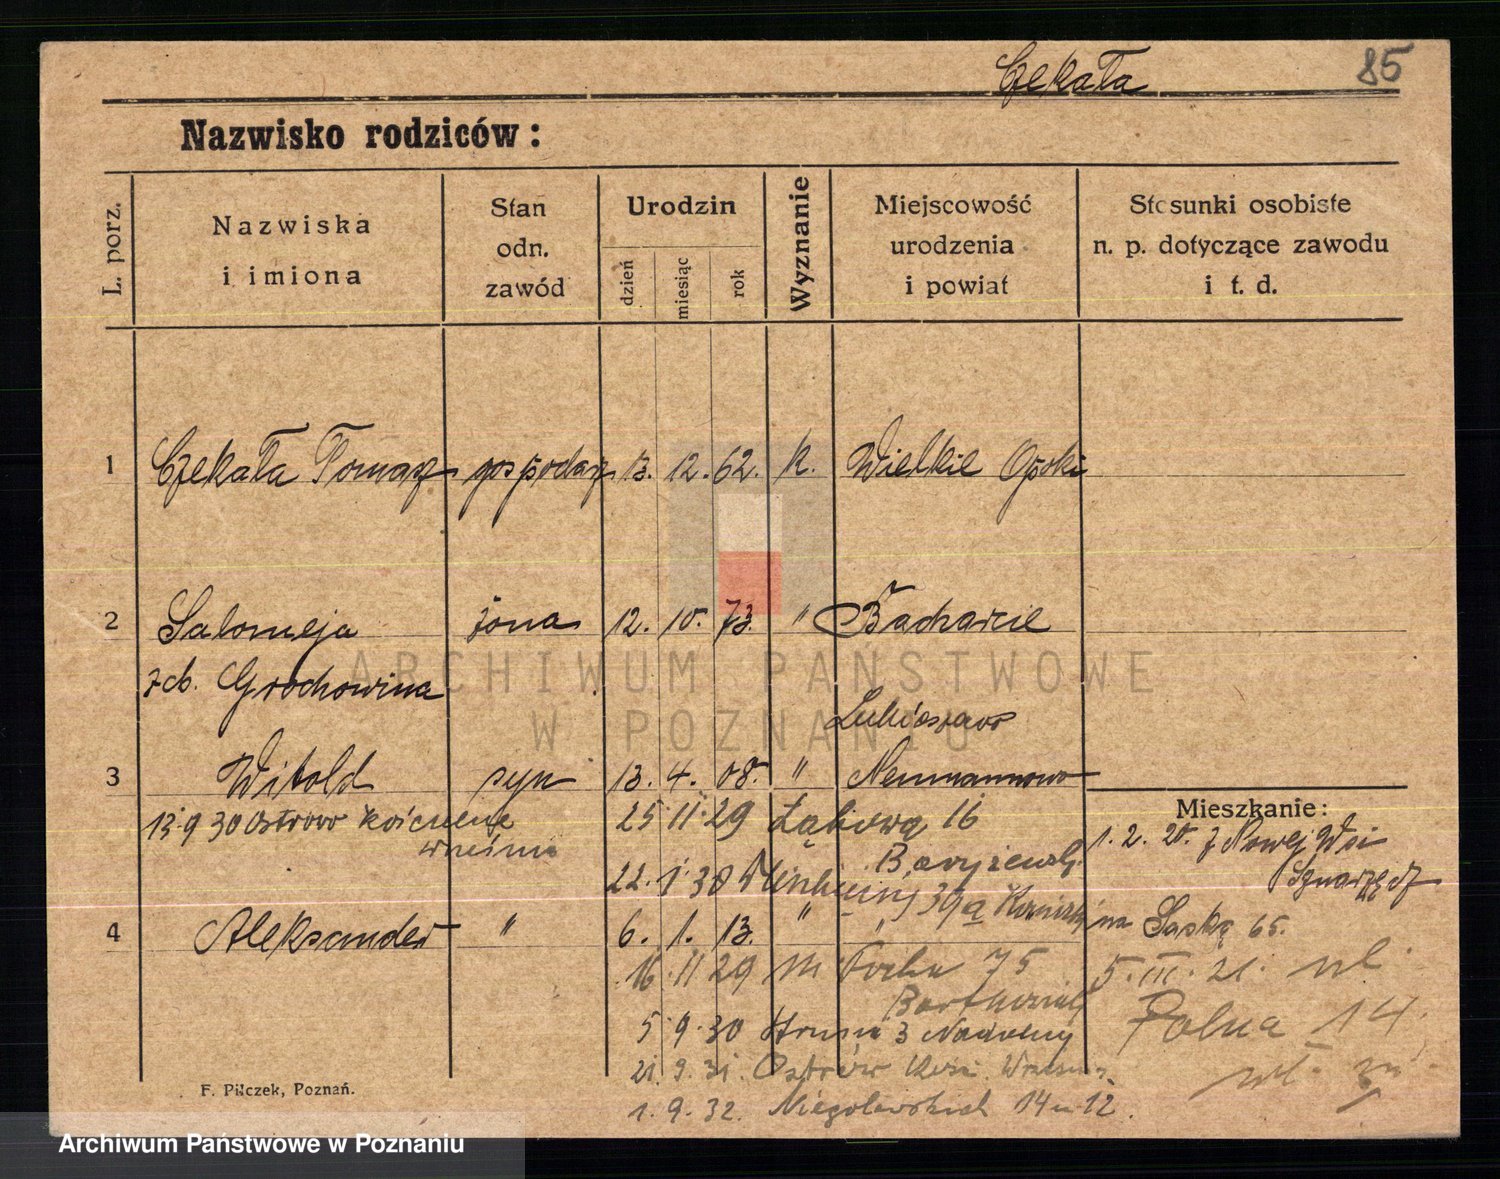 Czekała 85
Nazwisko rodziców:
L. porz.
Nazwiska
i imiona
Stan
odn.
zawód
Urodzin
dzień
miesiąc
rok
Wyznanie
Miejscowość
urodzenia
i powiat
Stosunki osobiste
n. p. dotyczące zawodu
i t. d.
1 Czekała Tomasz gospodarz 13. 12. 62. k. Wielkie Opoki
2 Salomeja żona 12. 10. 73. " Bacharcie
zd. Grochowina
ARCHIWUM PAŃSTWOWE
W POZNANIU
3 Witold syn 13. 4. 08. " Neumannowo
13.9 30 Ostrowo kościelne 25 11 29 Łąkowa 16
Mieszkanie:
1. 2. 20. z Nowej Wsi
22. 1. 30 39a
4 Aleksander " 6. 1. 13. " "
na Saską 65.
16 11 29 m Focha 75
5. III. 21. wł.
5 9. 30 Strusia 3 Nadolny
Polna 14.
21. 9. 31. Ostrów
1. 9. 32. Niegolewskich 14 m 12.
F. Pilczek, Poznań.
Archiwum Państwowe w Poznaniu